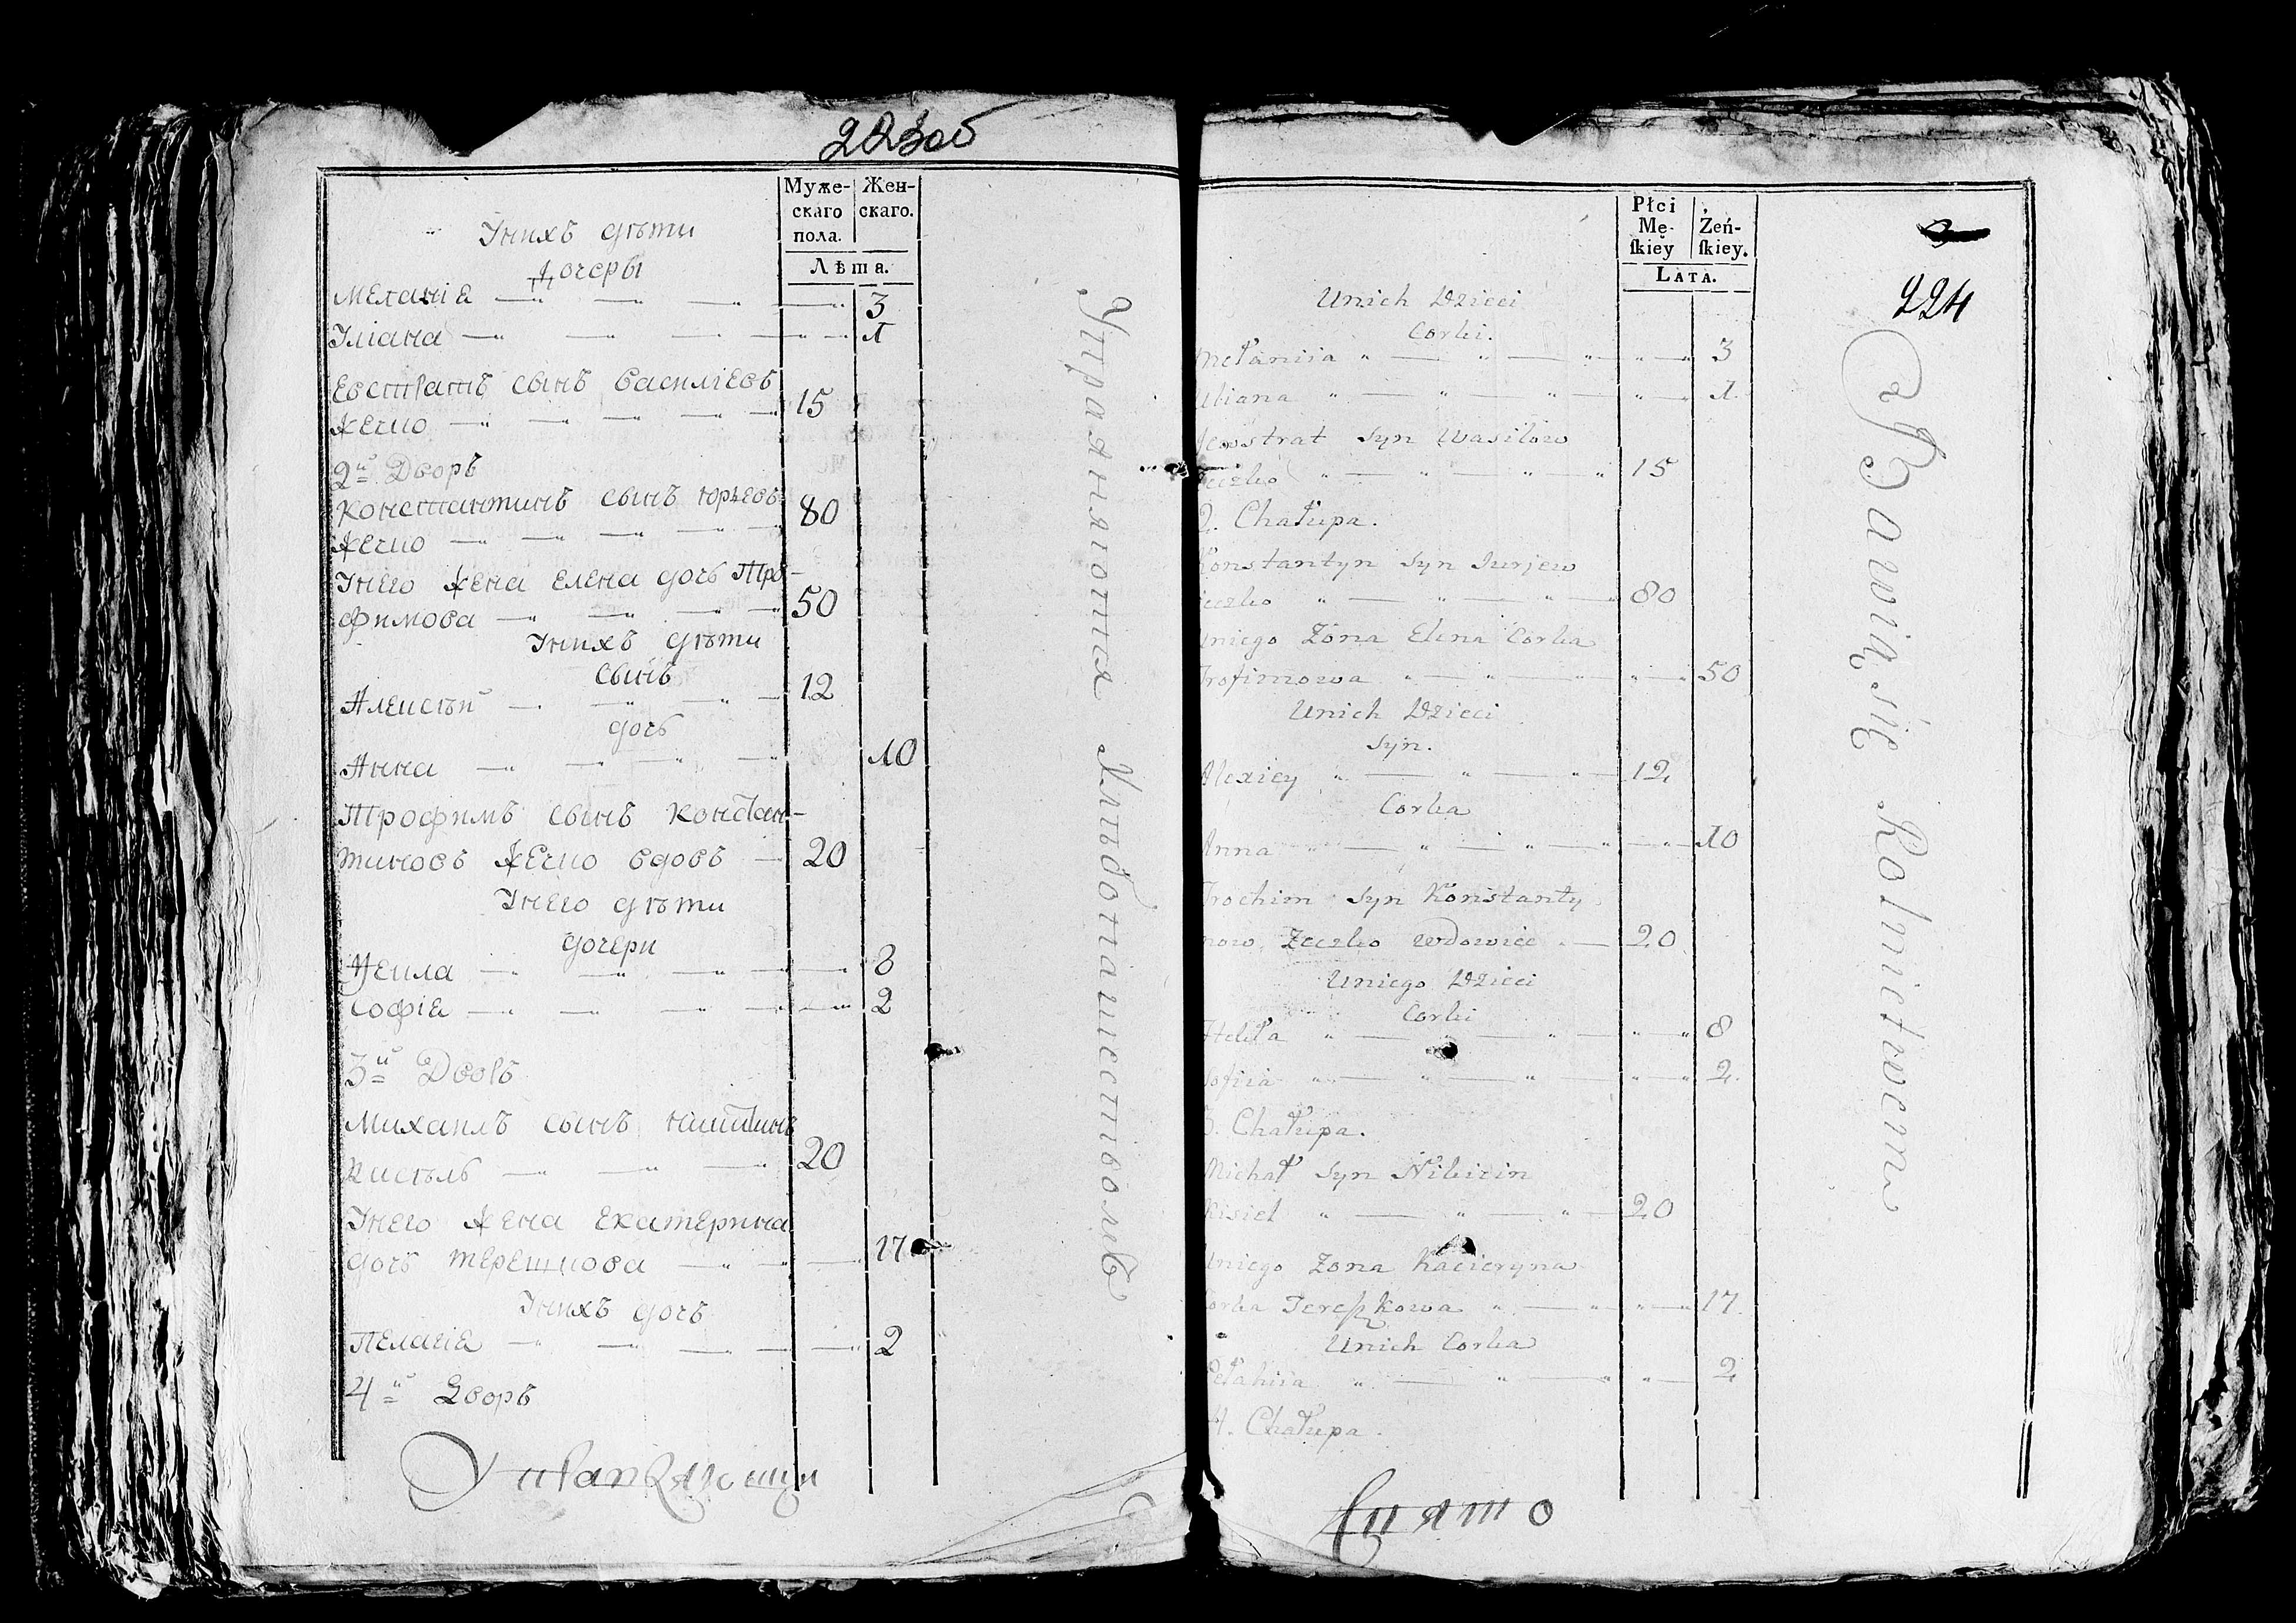 223об
Муже-
скаго
пола.
Жен-
скаго.
Лѣта.
Унихъ дѣти
дочеры
Меланіе 3
Уліана 1
Евстратъ сынъ василіевъ
жечко 15
2й Дворъ
Константинъ сынъ юрьевъ
жечко 80
Унего жена елена дочь Тро-
фимова 50
Унихъ дѣти
сынъ
Алексѣй 12
дочь
Анна 10
Трофимъ сынъ констан-
тиновъ жечко вдовъ 20
Унего дѣти
дочери
Фекла 8
Софіе 2
3й Дворъ
Михаилъ сынъ никитинъ
Кисѣль 20
Унего жена екатерина
дочь терешкова 17
Унихъ дочь
Пелагіе 2
4й Дворъ
Упражняются Хлѣбопашествомъ
Płci
Mę-
ſkiey
Żeń-
ſkiey.
LATA.
224
Unich Dzieci
Corki.
Mełaniia 3
Uliana 1
Jewstrat Syn Wasilow
Zeczko 15
2. Chałupa.
Konstantyn Syn Jurjew
Zeczko 80
Uniego Zona Elena Corka
Trofimowa 50
Unich Dzieci
Syn.
Alexiey 12
Corka
Anna 10
Trochim Syn Konstanty
now Zeczko wdowiec 20
Uniego Dzieci
Corki
Hekła 8
Sofiia 2
3. Chałupa.
Michał Syn Nikicin
Kisiel 20
Uniego Zona Kacieryna
Corka Tereszkowa 17
Unich Corka
Pełahiia 2
4. Chałupa.
Bawią się Rolnictwem